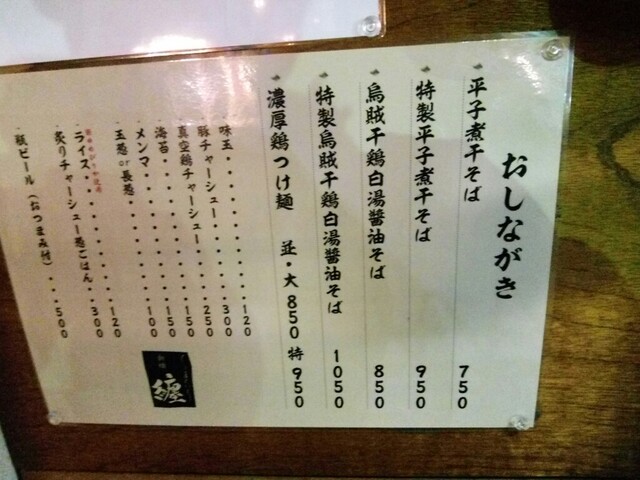 おしながき
平子煮干そば 750
特製平子煮干そば 950
烏賊干鶏白湯醤油そば 850
特製烏賊干鶏白湯醤油そば 1050
濃厚鶏つけ麺 並・大 850 特 950
味玉・・・・・・・・・・120
豚チャーシュー・・・・・・300
真空鶏チャーシュー・・・・250
海苔・・・・・・・・・・150
メンマ・・・・・・・・・150
玉葱or長葱・・・・・・・100
ライス・・・・・・・・・120
炙りチャーシュー葱ごはん・・300
瓶ビール（おつまみ付）・・・500
纏